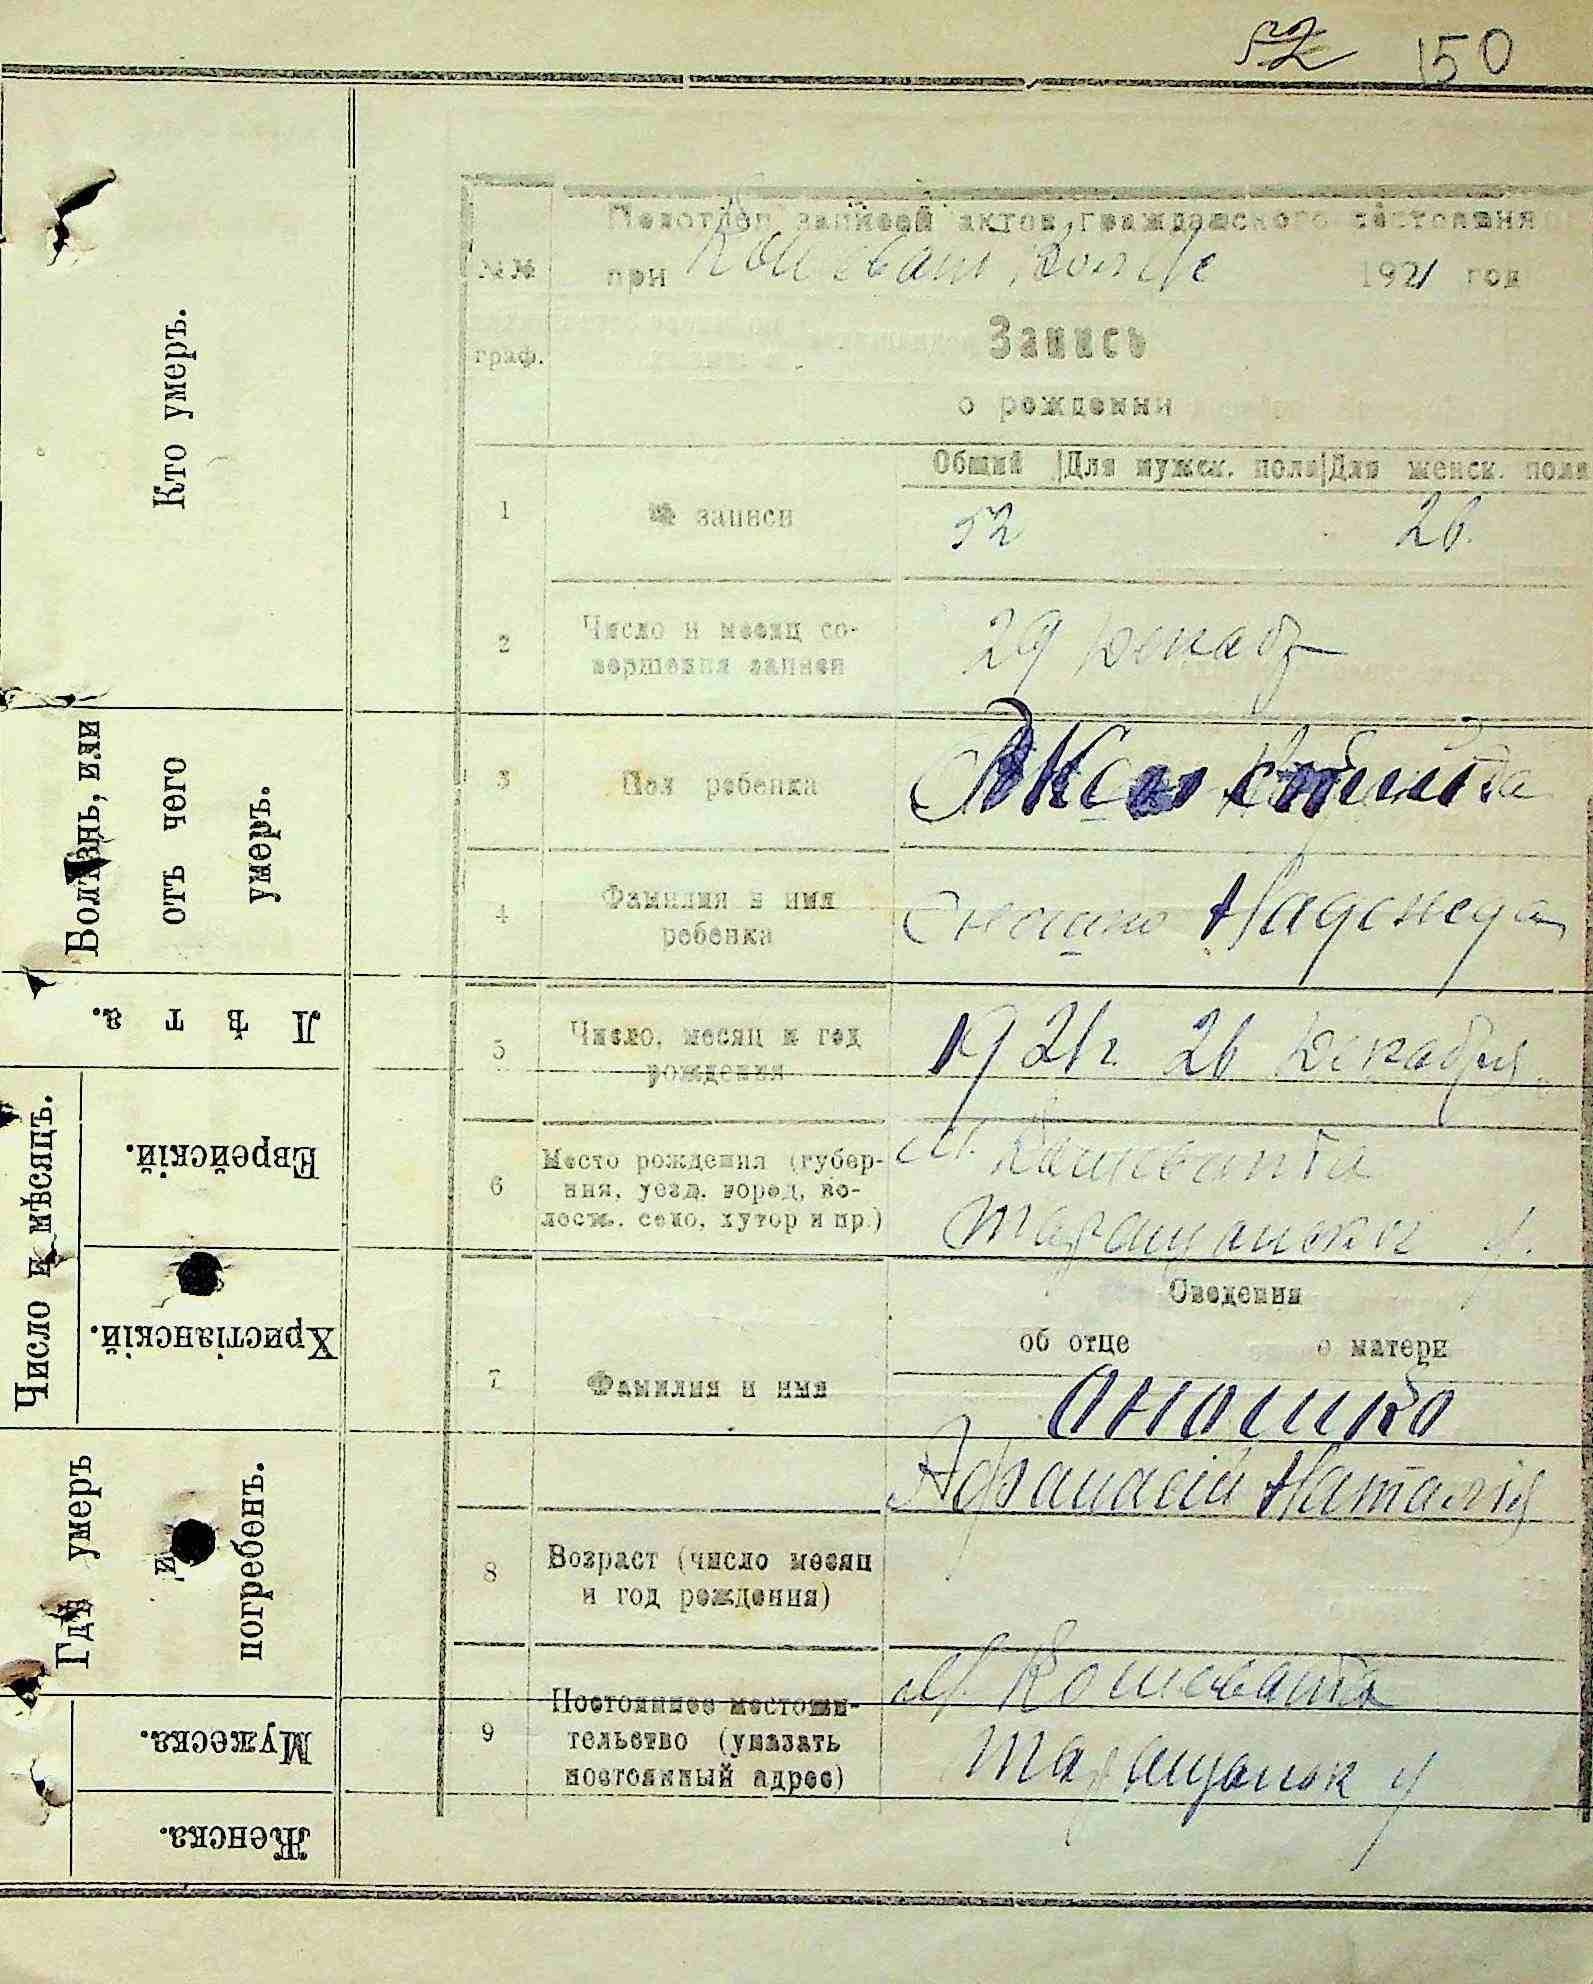 52 150
Кто умеръ.
Болѣзнь, или
отъ чего
умеръ.
Лѣта.
Число и мѣсяцъ.
Еврейскій.
Христіанскій.
Гдѣ умеръ
и
погребенъ.
Мужеска.
Женска.
№№
граф.
Подотдел записей актов гражданского состояния
при 1921 год
Запись
о рождении
Общий Для мужск. пола Для женск. пола
1 № записи 52 26.
2 Число и месяц со-
вершения записи
29 декаб
3 Пол ребенка
4 Фамилия и имя
ребенка
Надежда
5 Число, месяц и год
рождения
1921г. 26 декабря
6 Место рождения (губер-
ния, уезд, город, во-
лость, село, хутор и пр.)
м. Кошевата
Таращанск у.
Сведения
об отце о матери
7 Фамилия и имя
Оношко
Афанасій Наталія
8 Возраст (число месяц
и год рождения)
9 Постоянное местожи-
тельство (указать
постоянный адрес)
м. Кошевата
Таращанск у